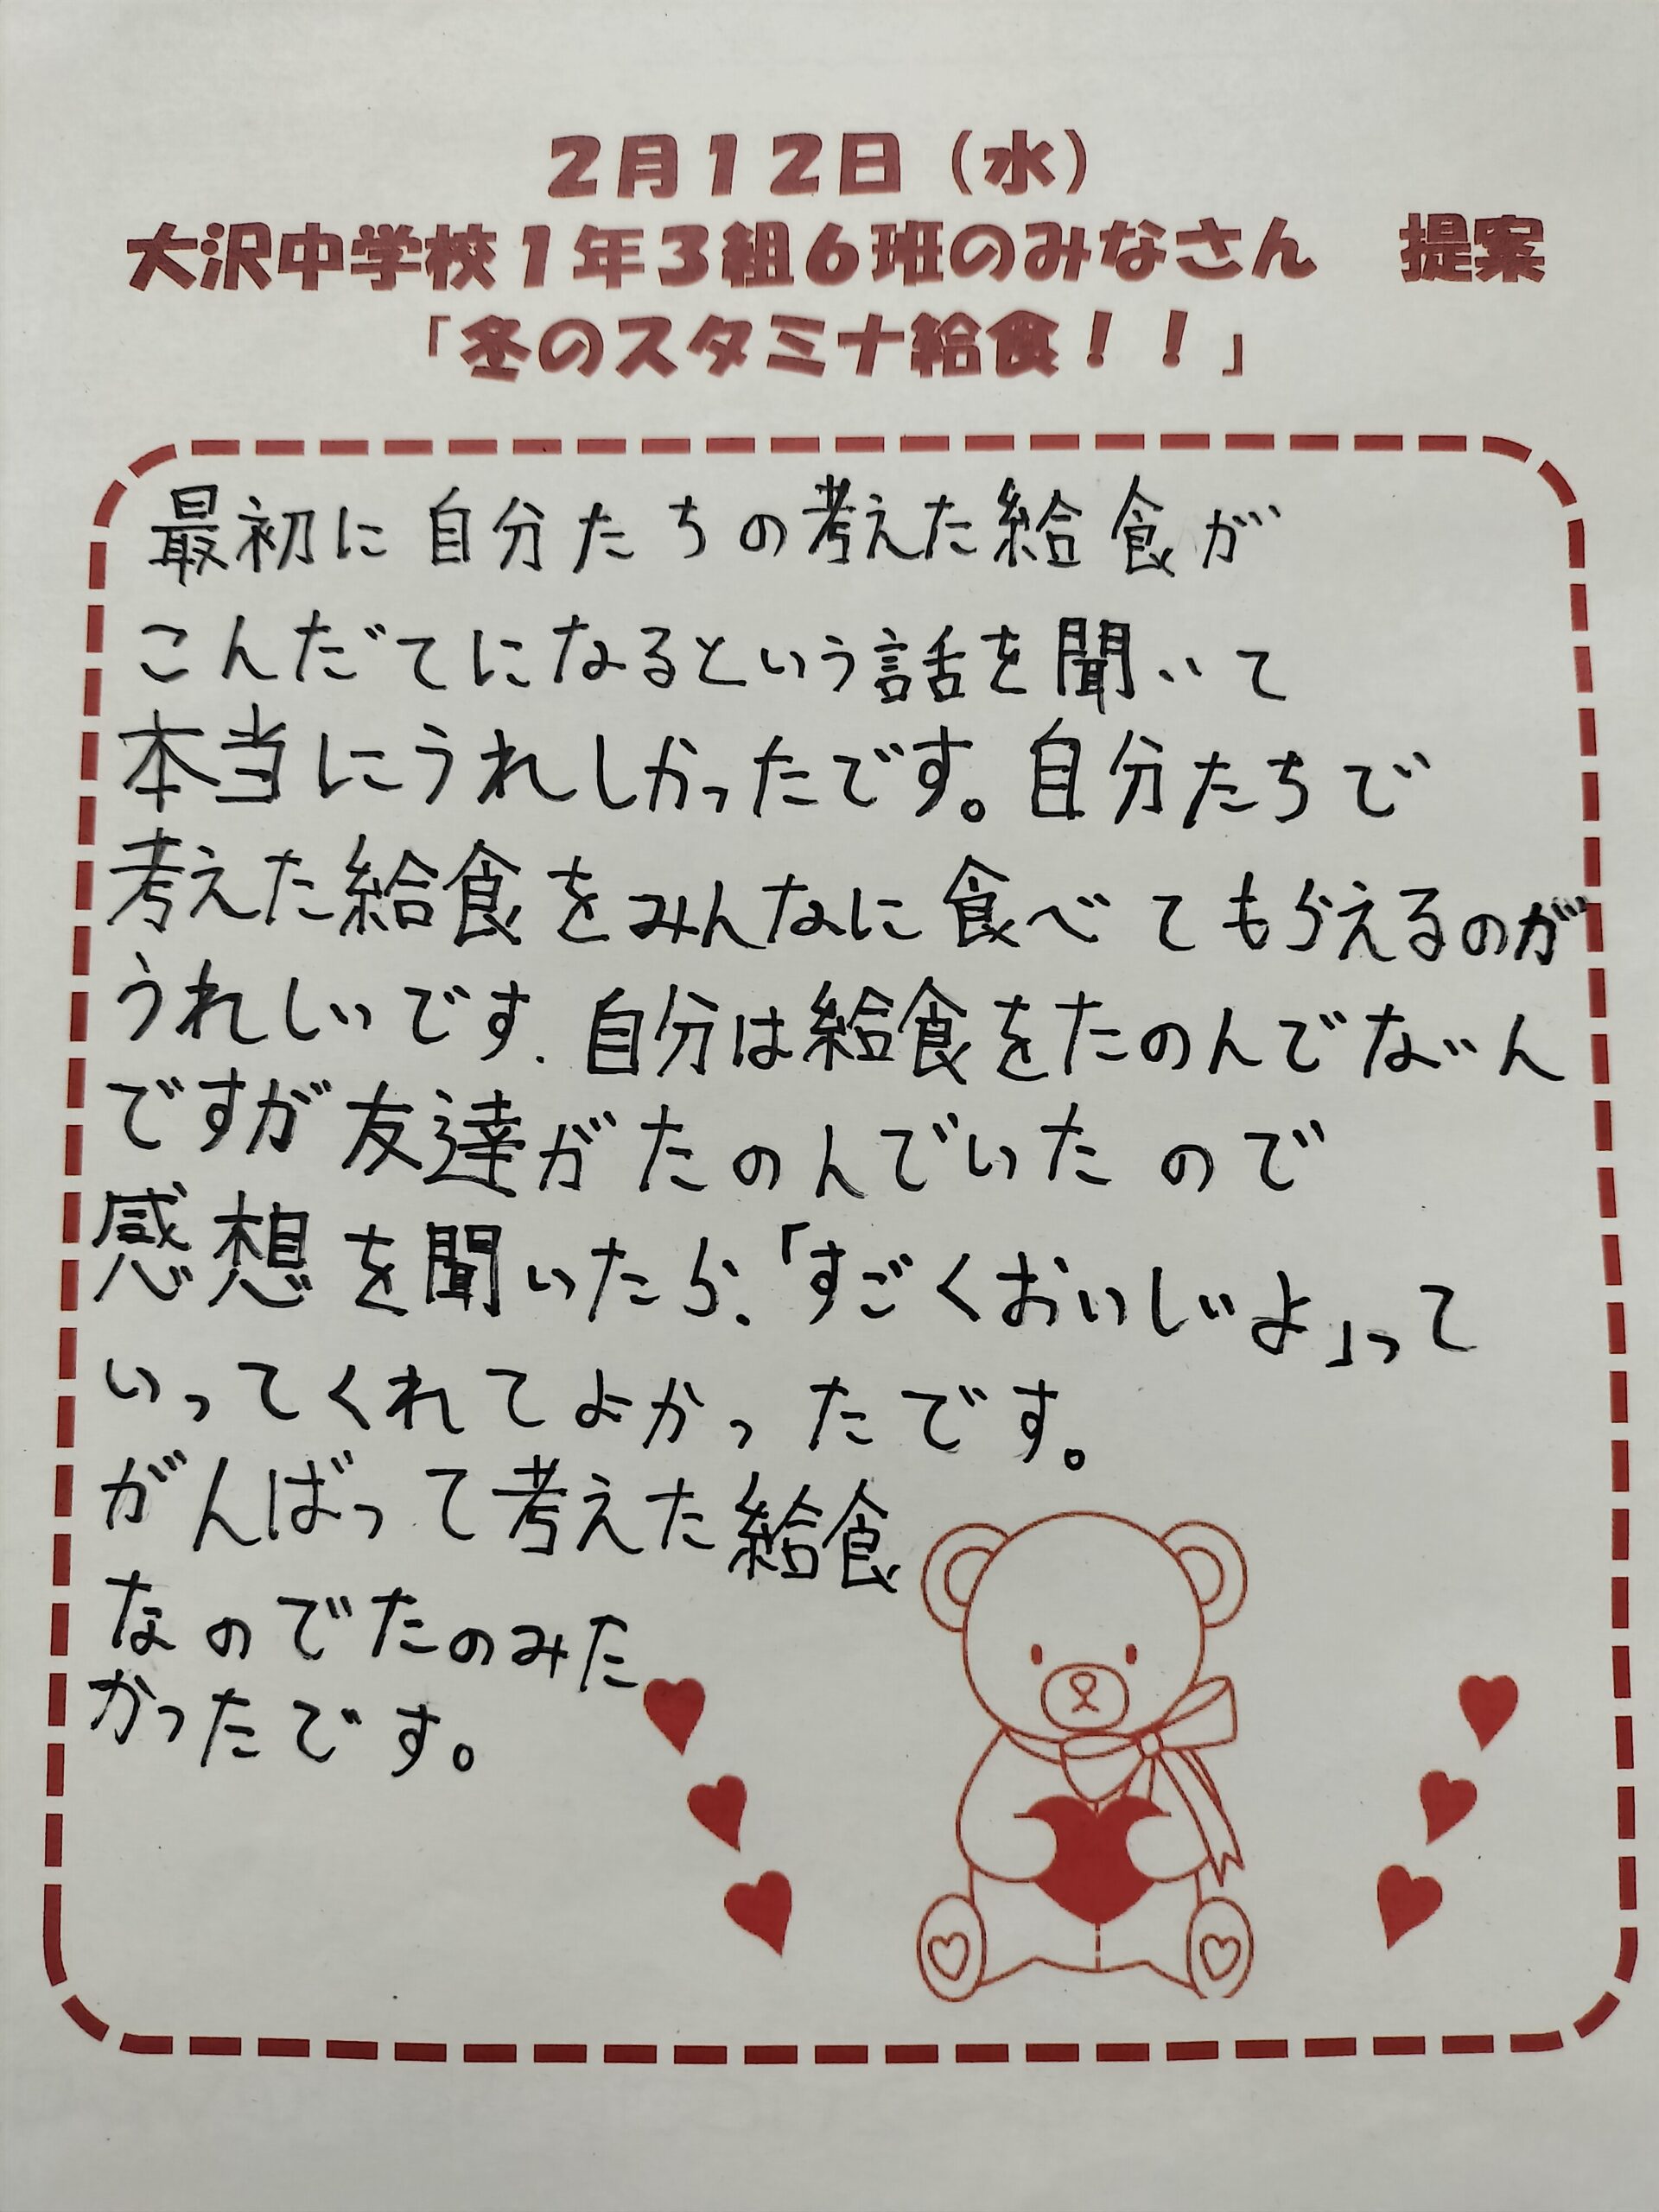 2月12日（水）
大沢中学校1年3組6班のみなさん　提案
「冬のスタミナ給食！！」
最初に自分たちの考えた給食が
こんだてになるという話を聞いて
本当にうれしかったです。自分たちで
考えた給食をみんなに食べてもらえるのが
うれしいです、自分は給食をたのんでないん
ですが友達がたのんでいたので
感想を聞いたら、「すごくおいしいよ」って
いってくれてよかったです。
がんばって考えた給食
なのでたのみた
かったです。